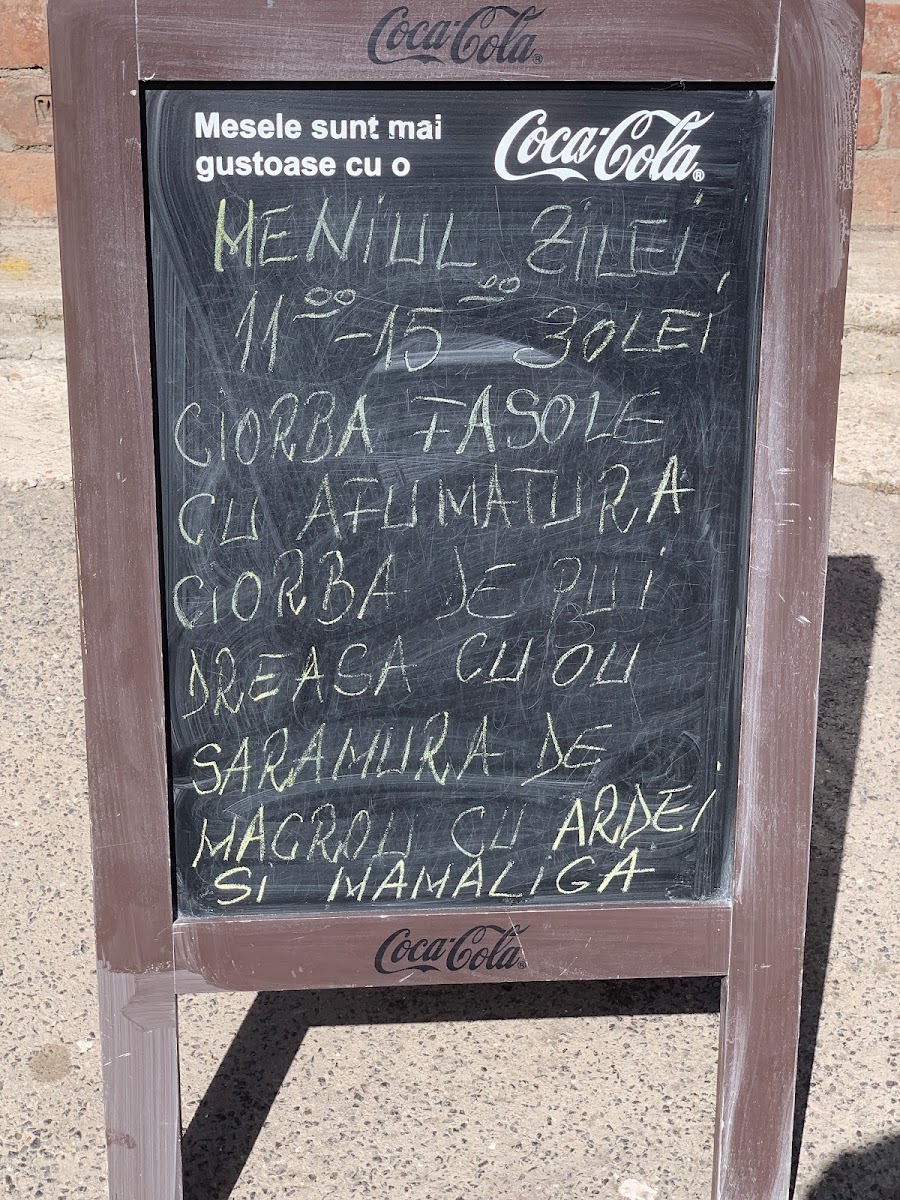 Coca-Cola®
Mesele sunt mai
gustoase cu o
Coca-Cola®
MENIUL ZILEI,
11⁰⁰-15⁰⁰ 30LEI
CIORBA FASOLE
CU AFUMATURA
CIORBA DE PUI
DREASA CU OU
SARAMURA DE
MACROU CU ARDEI
SI MAMALIGA
Coca-Cola®